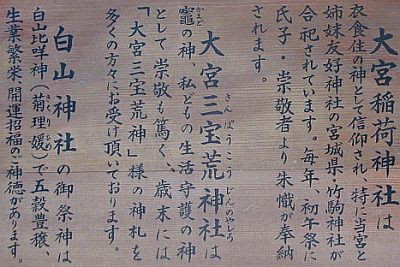 大宮稲荷神社は
衣食住の神として信仰され、特に当宮と
姉妹友好神社の宮城県・竹駒神社が
合祀されています。毎年、初午祭に
氏子・崇敬者より朱幟が奉納
されます。
大宮三宝荒神社は
さんぽうこうじんのやしろ
竈の神、私どもの生活守護の神
かまど
として崇敬も篤く、歳末には
「大宮三宝荒神」様の神札を
多くの方々にお受け頂いております。
白山神社の御祭神は
白山比咩神(菊理媛)で五穀豊穣、
生業繁栄、開運招福のご神徳があります。